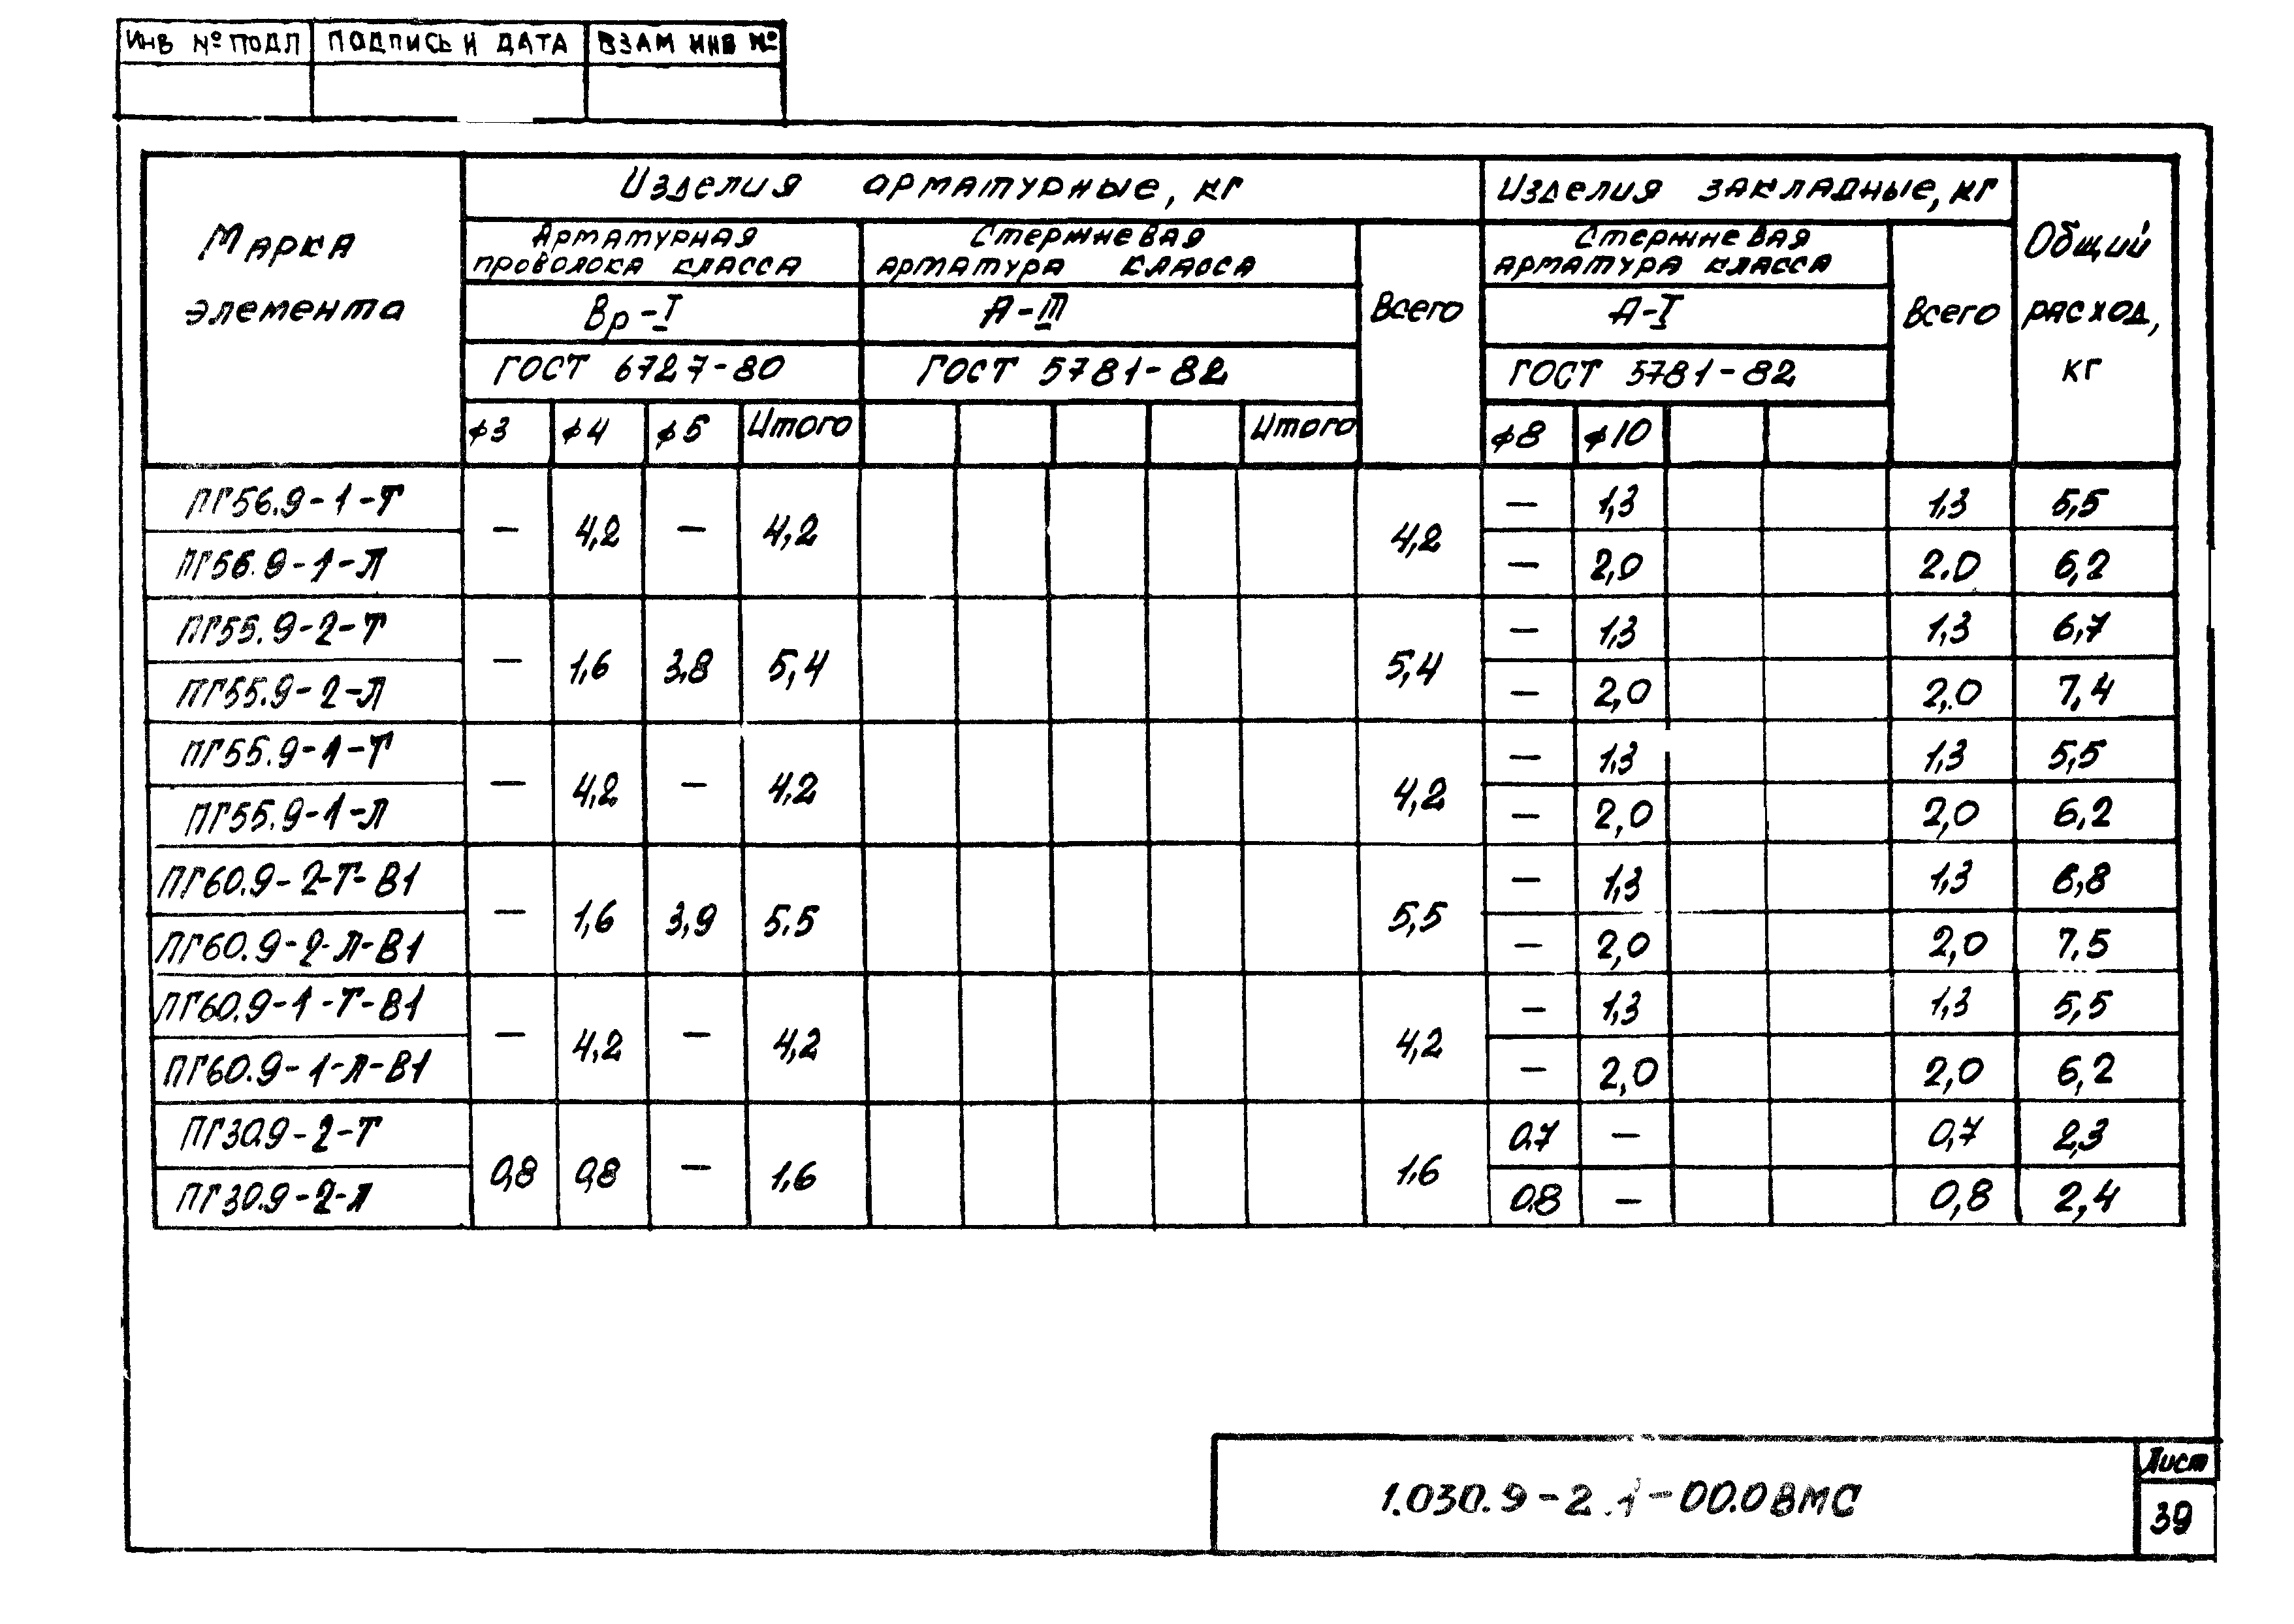 ИНВ № ПОДЛ ПОДПИСЬ И ДАТА ВЗАМ ИНВ №
Марка элемента
Изделия арматурные, кг
Изделия закладные, кг
Общий расход, кг
Арматурная проволока класса
Стержневая арматура класса
Всего
Стержневая арматура класса
Всего
Вр-I
А-III
А-I
ГОСТ 6727-80
ГОСТ 5781-82
ГОСТ 5781-82
ф3 ф4 ф5 Итого Итого ф8 ф10
ПГ56.9-1-Т — 4,2 — 4,2 4,2 — 1,3 1,3 5,5
ПГ56.9-1-Л — 2,0 2.0 6,2
ПГ55.9-2-Т — 1,6 3,8 5,4 5,4 — 1,3 1,3 6,7
ПГ55.9-2-Л — 2,0 2,0 7,4
ПГ55.9-1-Т — 4,2 — 4,2 4,2 — 1,3 1,3 5,5
ПГ55.9-1-Л — 2,0 2,0 6,2
ПГ60.9-2-Т-В1 — 1,6 3,9 5.5 5,5 — 1,3 1,3 6,8
ПГ60.9-2-Л-В1 — 2,0 2,0 7,5
ПГ60.9-1-Т-В1 — 4,2 — 4,2 4,2 — 1,3 1,3 5,5
ПГ60.9-1-Л-В1 — 2,0 2,0 6,2
ПГ30.9-2-Т 0,8 0,8 — 1,6 1,6 0,7 — 0,7 2,3
ПГ30.9-2-Л 0,8 — 0,8 2,4
1.030.9-2.1-00.0ВМС
Лист
39